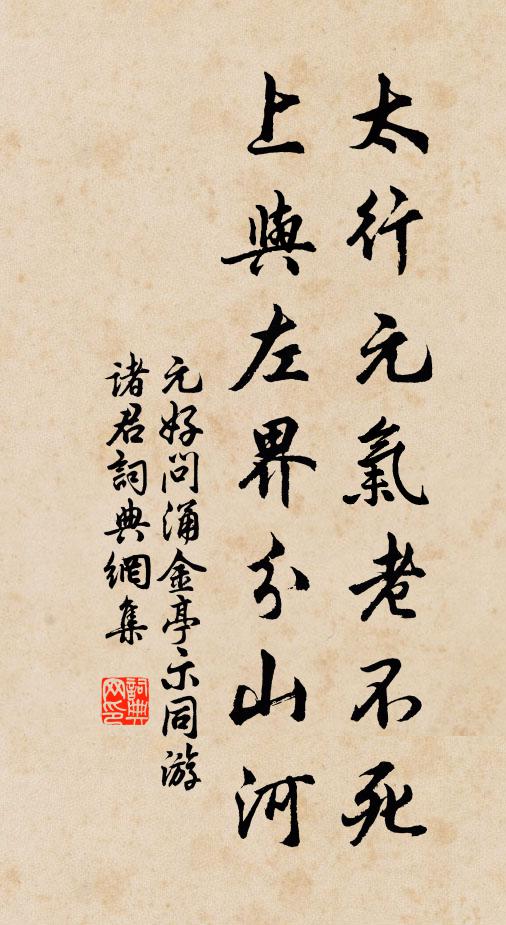 太行元氣老不死
上與左界分山河
元好问涌金亭示同游
诸君詞典網集
詞典
网印